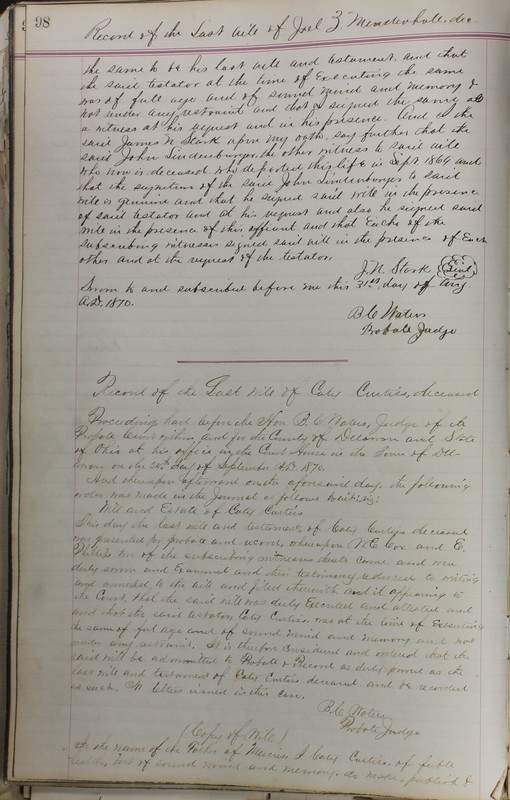 98
Record of the Last will of Joel Z Mendenhall, dec
the same to be his last will and testament and that
the said testator at the time of Executing the same
was of full age and of sound mind and memory &
not under any restraint and that he signed the same as
a witness at his request and in his presence. And I the
said James N. Stark upon my oath, say further that the
said John Lindenburger, the other witness to said will
who now is deceased, who departed this life in Sept 1869 and
that the signature of the said John Lindenburger to said
will is genuine and that he signed said will in the presence
of said testator and at his request and also he signed said
will in the presence of this affiant and that Each of the
subscribing witnesses signed said will in the presence of Each
other and at the request of the testator.
J. N. Stark Seal
Sworn to and subscribed before me this 31st day of Aug.
A.D. 1870.
B C Waters
Probate Judge
Record of the Last will of Caty Curtiss, deceased
Proceedings had before the Hon B. C. Waters, Judge of the
Probate Court within and for the County of Delaware and State
of Ohio at his office in the Court House in the Town of Del-
aware on the day of September A.D. 1870.
And thereupon afterward on the aforesaid day, the following
order was made in the Journal as follows
Will and Estate of Caty Curtiss
This day the last will and testament of Caty Curtiss deceased
was presented for probate and record, whereupon W. E. Cox and E.
Phillips two of the subscribing witnesses thereto came and were
duly sworn and Examined and their testimony reduced to writing
and annexed to the will and filed therewith and it appearing to
the Court, that the said will was duly Executed and attested and
and that the said testatrix Caty Curtiss was at the time of Executing
the same of full age and of sound mind and memory and not
under any restraint. It is therefore considered and ordered that the
said will be admitted to Probate & Record as duly proven as the
last will and testament of Caty Curtiss deceased and be recorded
as such. letters issued in this case.
B. C. Waters
Probate Judge
(Copy of Will)
In the name of the Father of Mercies I Caty Curtiss, of feeble
but of sound mind and memory, do make, publish &